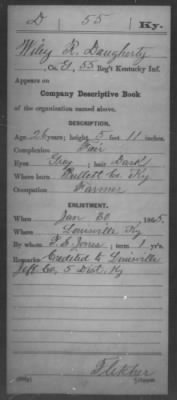 D 55 Ky.
Wiley R. Daugherty
Co. G, 55 Reg't Kentucky Inf.
Appears on
Company Descriptive Book
of the organization named above.
DESCRIPTION.
Age 26 years; height 5 feet 11 inches.
Complexion Fair
Eyes Grey; hair Dark
Where born Bullett Co Ky
Occupation Farmer
ENLISTMENT.
When Jan 30, 1865.
Where Louisville Ky
By whom Jones; term 1 y'rs.
Remarks Credited to Louisville
Jeff Co, 5 Dist. Ky
Copyist.